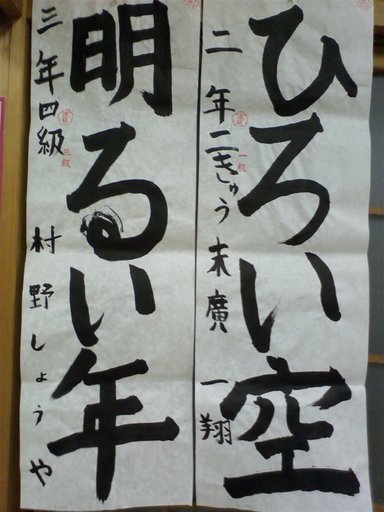 ひろい空
二年二きゅう 末廣一翔
一級
明るい年
三年四級 村野しょうや
三級